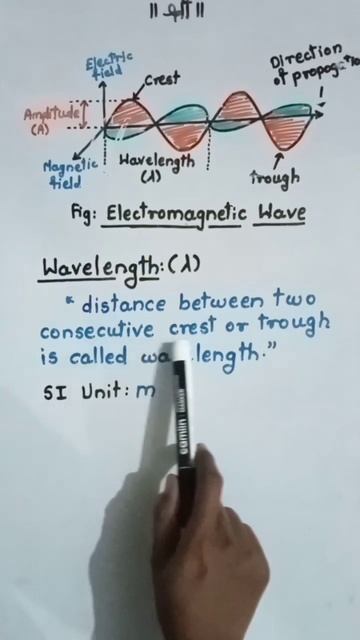 || श्री ||
Electric
field
Crest
Direction
of propogation
Amplitude
(A)
Magnetic
field
Wavelength
(λ)
trough
Fig: Electromagnetic Wave
Wavelength:(λ)
" distance between two
consecutive crest or trough
is called wa length."
SI Unit: m
camlin